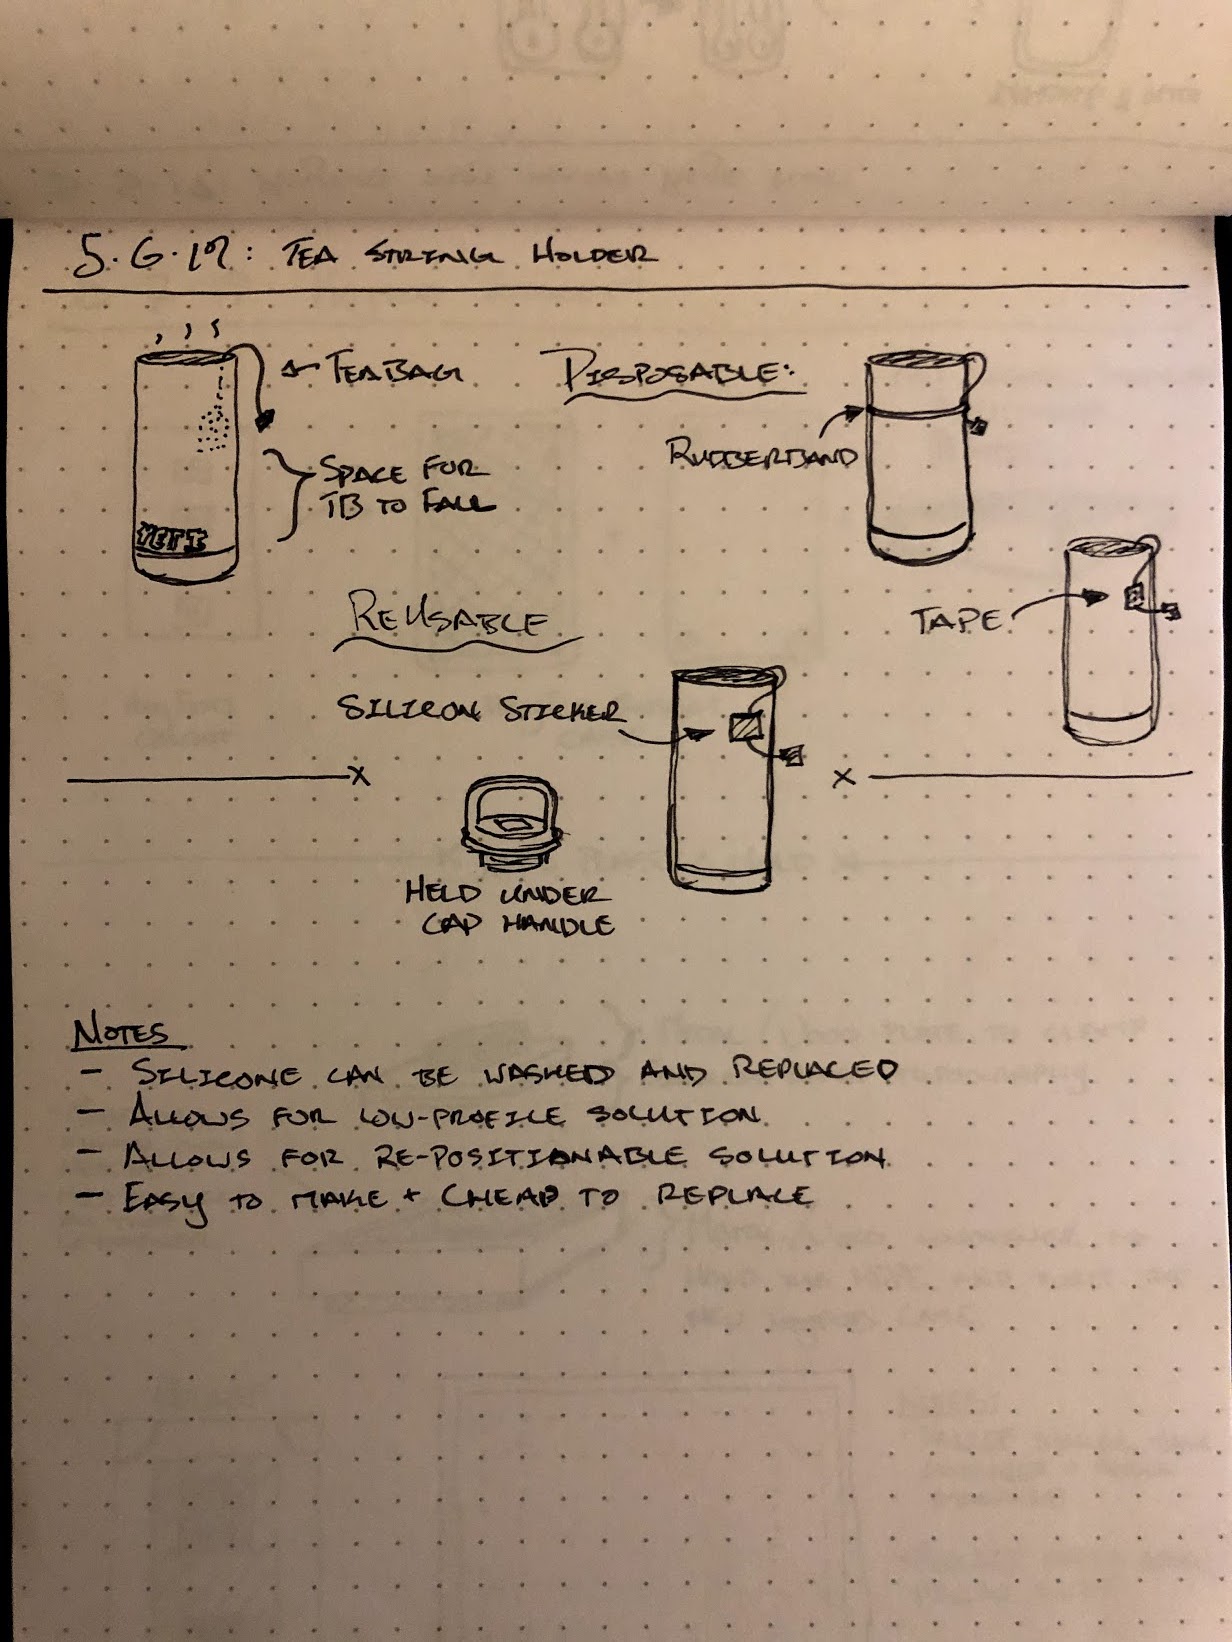 5.6.19: TEA STRING HOLDER
TEABAG
SPACE FOR
TB TO FALL
YETI
DISPOSABLE:
RUBBERBAND
TAPE
REUSABLE
SILICON STICKER
HELD UNDER
CAP HANDLE
NOTES
- SILICONE CAN BE WASHED AND REPLACED
- ALLOWS FOR LOW-PROFILE SOLUTION
- ALLOWS FOR RE-POSITIONABLE SOLUTION
- EASY TO MAKE + CHEAP TO REPLACE